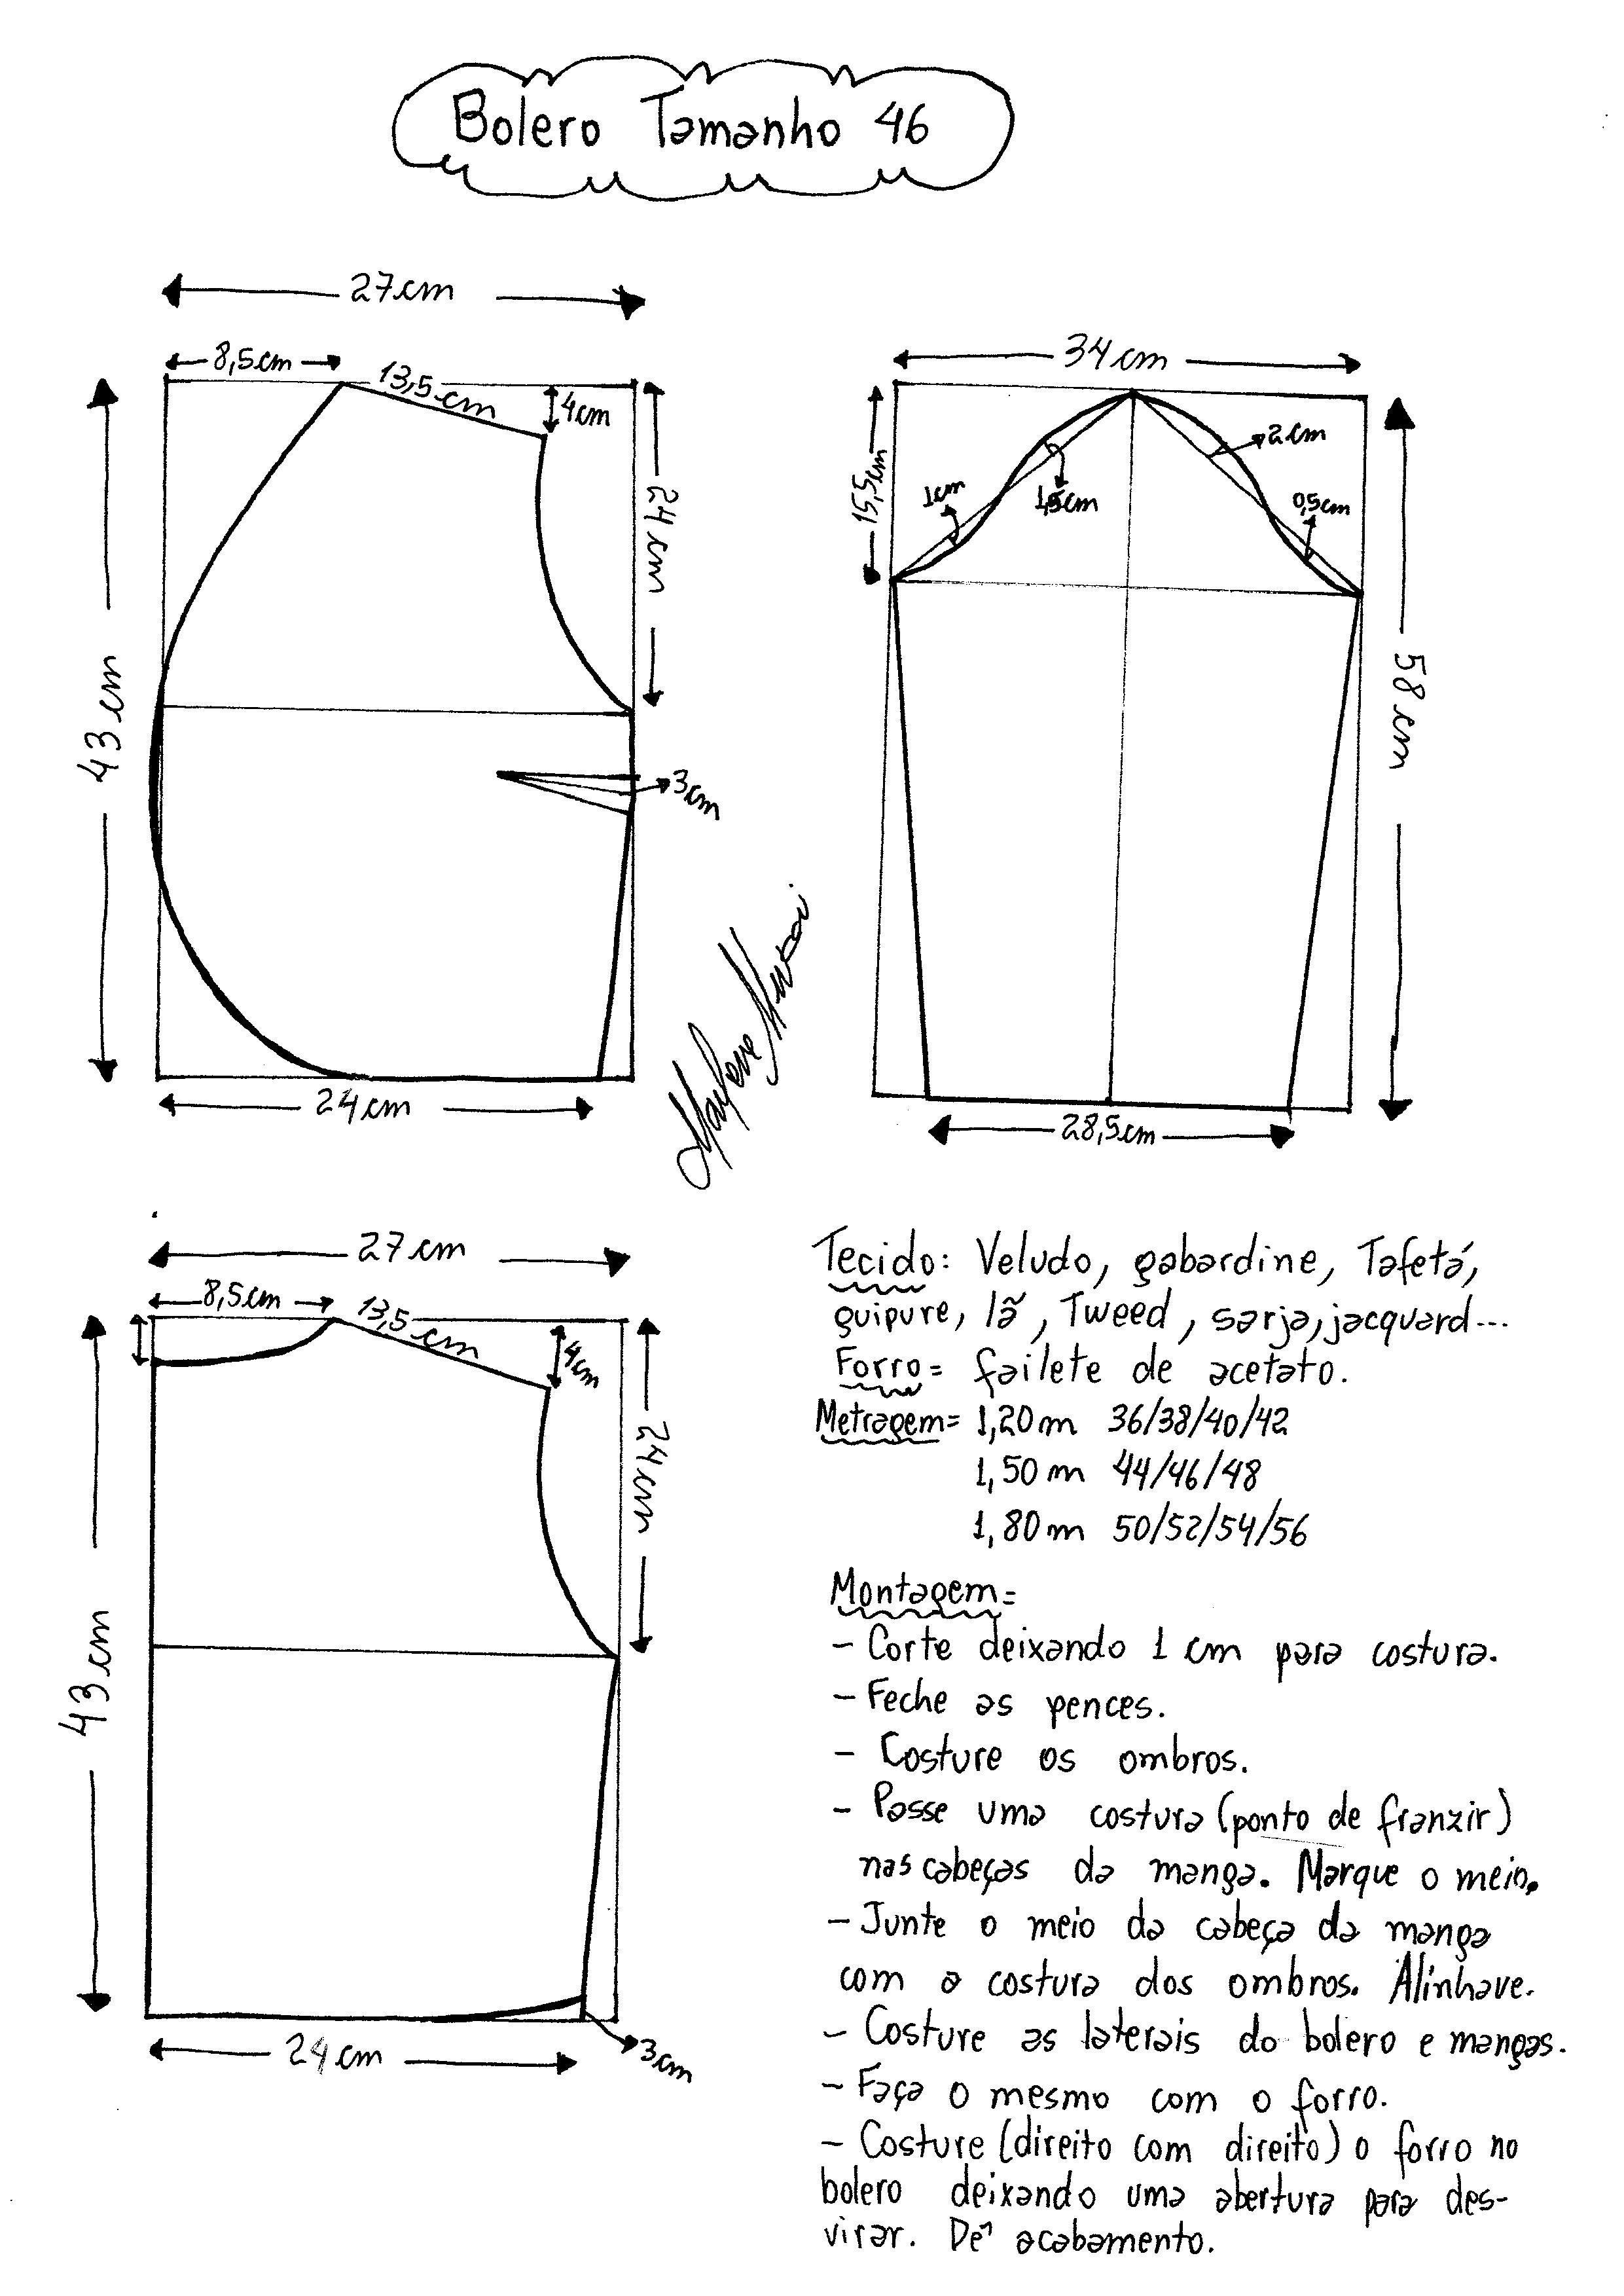 Bolero Tamanho 46
27cm
8,5cm
13,5cm
4cm
24cm
43cm
3cm
24cm
34cm
15,5cm
1cm
1,5cm
2cm
0,5cm
58cm
28,5cm
27cm
8,5cm
13,5cm
4cm
24cm
43cm
24cm
3cm
Tecido: Veludo, gabardine, Tafetá,
guipure, lã, Tweed, sarja, jacquard...
Forro= failete de acetato.
Metragem= 1,20m 36/38/40/42
1,50m 44/46/48
1,80m 50/52/54/56
Montagem=
- Corte deixando 1 cm para costura.
- Feche as pences.
- Costure os ombros.
- Passe uma costura (ponto de franzir)
nas cabeças da manga. Marque o meio.
- Junte o meio da cabeça da manga
com a costura dos ombros. Alinhave.
- Costure as laterais do bolero e mangas.
- Faça o mesmo com o forro.
- Costure (direito com direito) o forro no
bolero deixando uma abertura para des-
virar. Dê acabamento.